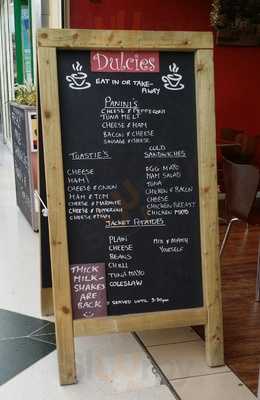 Dulcies
EAT IN OR TAKE-
AWAY
PANINI'S
CHEESE & PEPPERONI
TUNA MELT
CHEESE & HAM
BACON & CHEESE
SAUSAGE & CHEESE
TOASTIE'S
CHEESE
HAM
CHEESE & ONION
HAM & TOM
CHEESE & PEPPERONI
CHEESE & MARMITE
CHEESE AND HAM
COLD
SANDWICHES
EGG MAYO
HAM SALAD
TUNA
CHICKEN & BACON
CHEESE
CHICKEN BREAST
CHICKEN MAYO
JACKET POTATOES
PLAIN
CHEESE
BEANS
CHILLI
TUNA MAYO
COLESLAW
MIX & MATCH
YOURSELF
SERVED UNTIL 3:30pm
THICK
MILK-
SHAKES
ARE
BACK